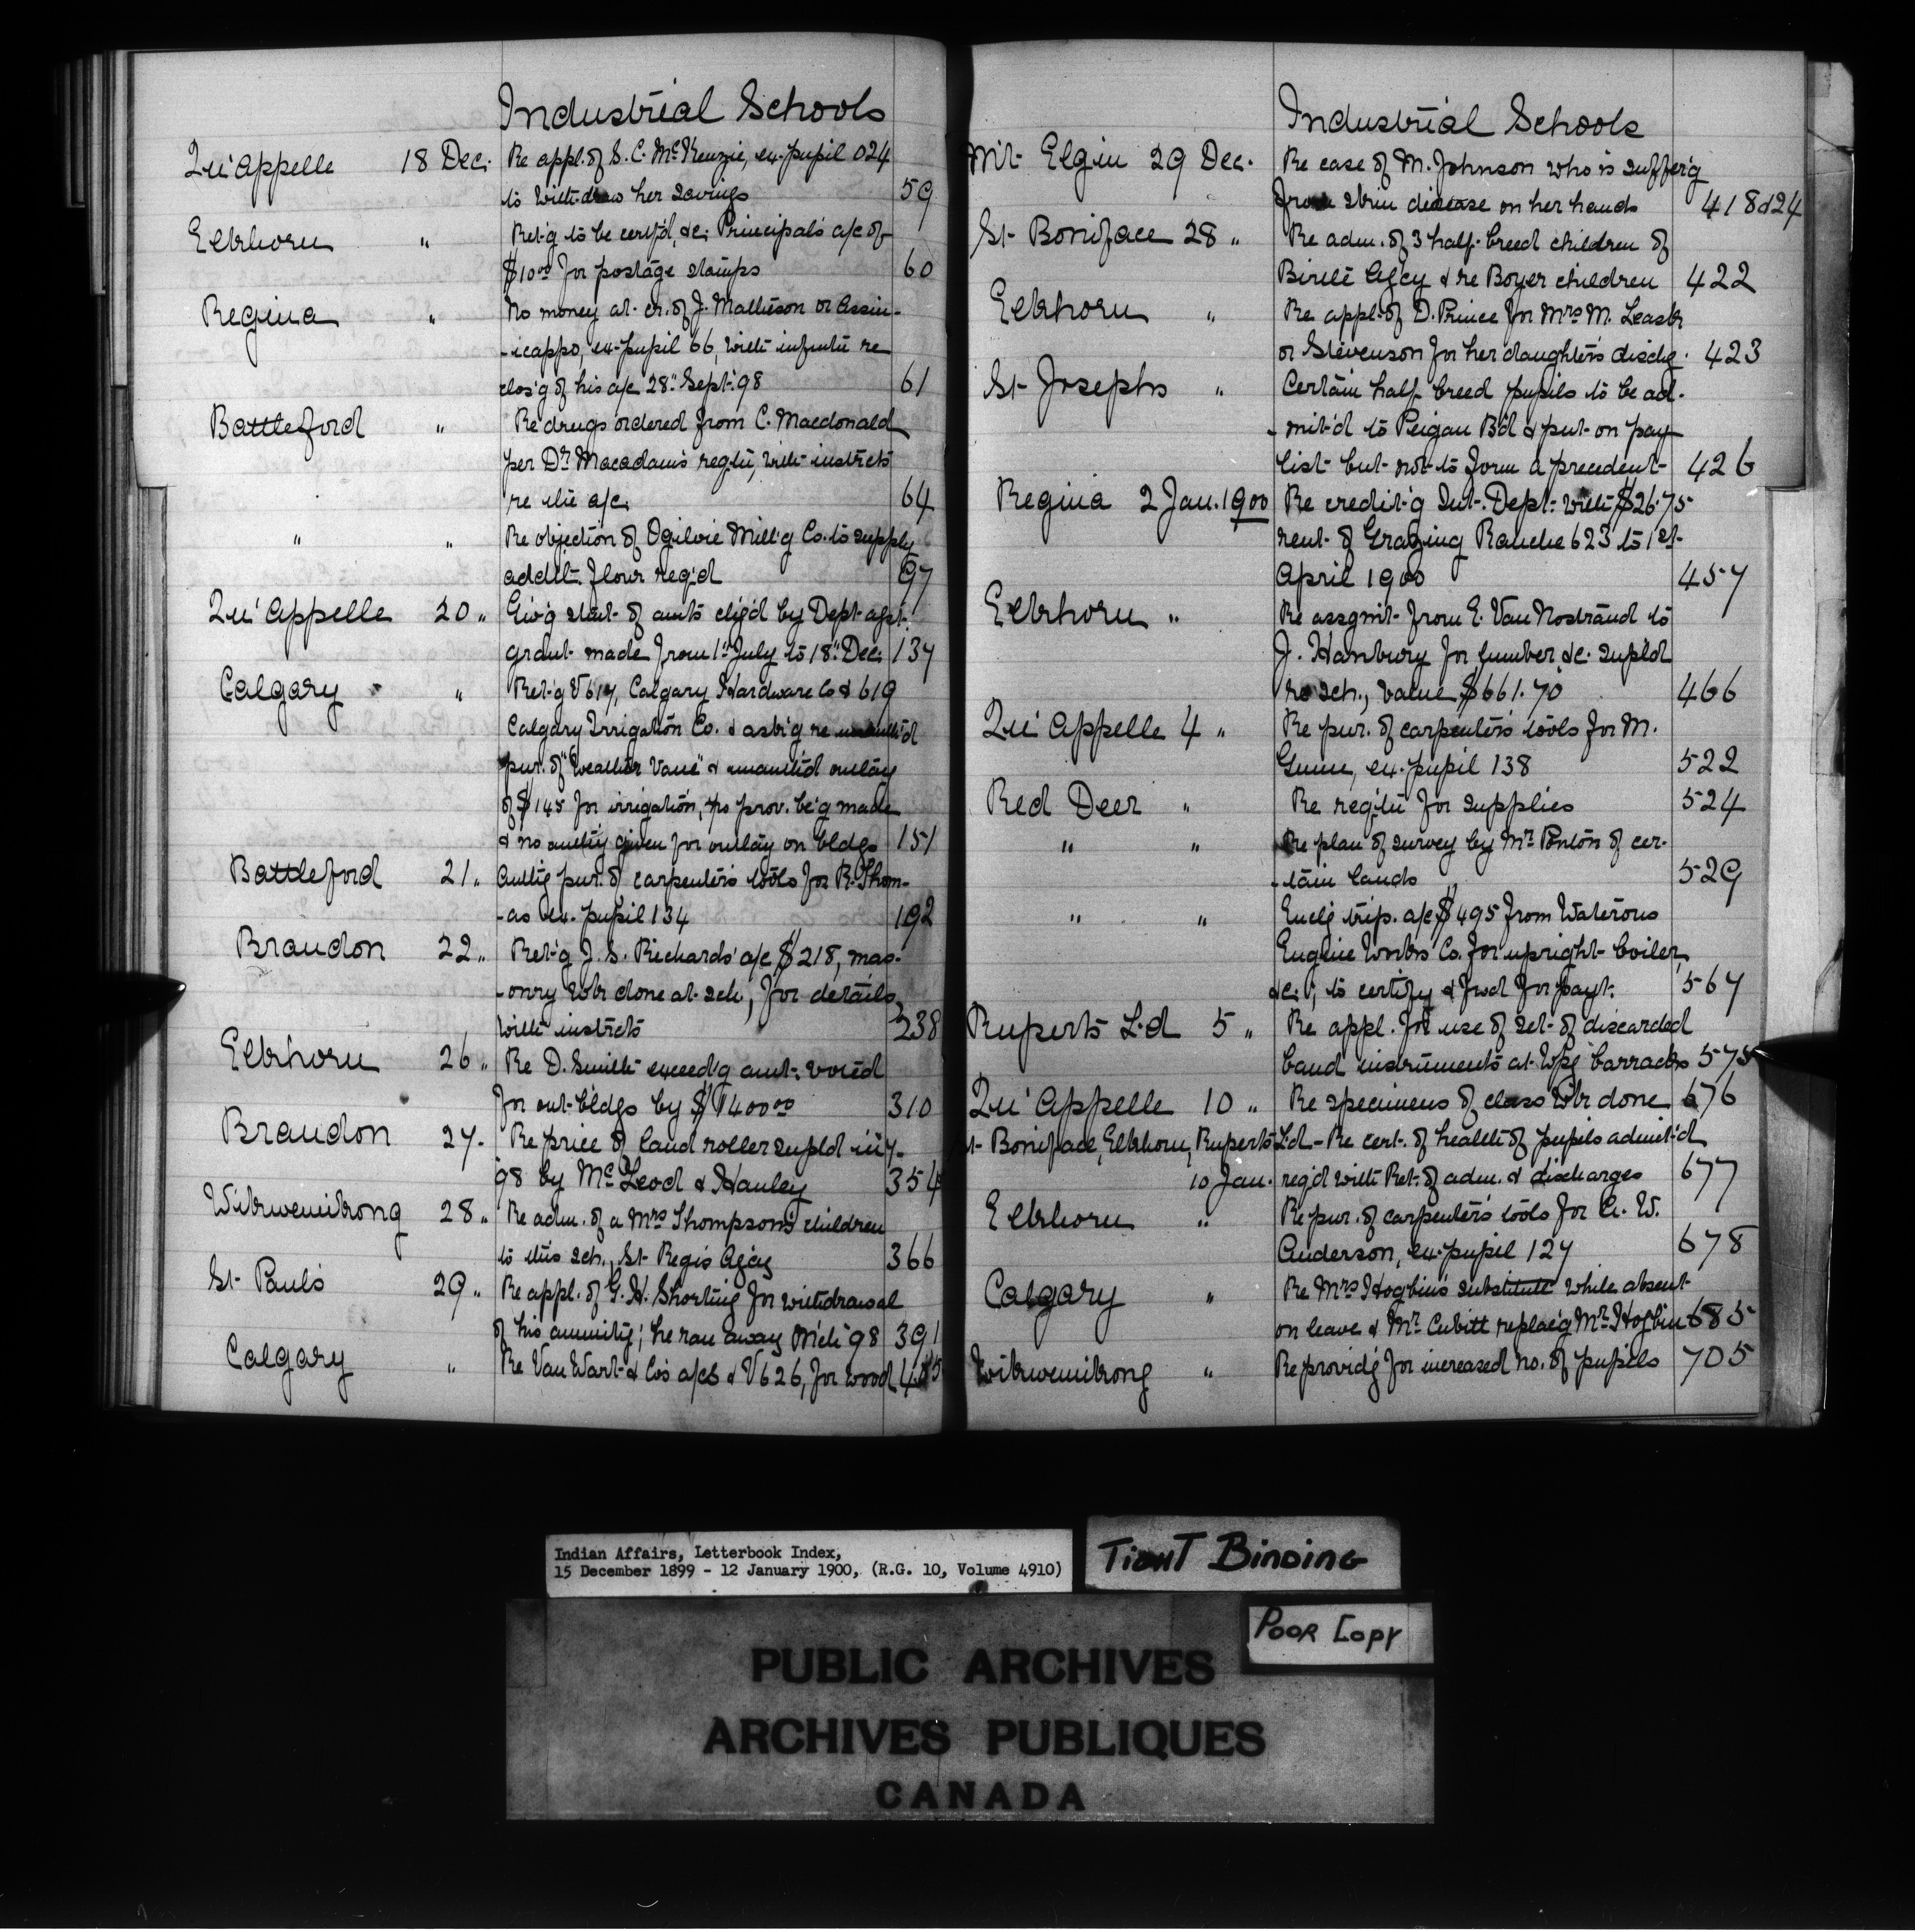 Industrial Schools
Qu'Appelle 18 Dec. Re appl. of S. C. McKenzie, ex-pupil 024
to withdraw her savings 59
Elkhorn " Ret'g to be certf'd, &c; Principal's a/c of
$10.00 for postage stamps 60
Regina " No money at cr. of J. Mathieson or Assin-
-icappo, ex-pupil 66, with infmtn re
clos'g of his a/c 28" Sept. '98 61
Battleford " Re drugs ordered from C. Macdonald
per Dr Macadam's reqtn, with instrcts
re the a/c. 64
" " Re objection of Ogilvie Mill'g Co. to supply
addit. flour req'd 97
Qu'Appelle 20 " Giv'g stmt. of amts chg'd by Dept agst.
grant made from 1st July to 18" Dec. 137
Calgary " Ret'g V 617, Calgary Hardware Co & 619
Calgary Irrigation Co. & ask'g re unauth'd
pur. of "Weather Vane" & unauth'd outlay
of $145 for irrigation, no prov. be'g made
& no authy given for outlay on bldgs 151
Battleford 21 " Authg pur. of carpenter's tools for R. Thom-
-as ex. pupil 134 192
Brandon 22 " Ret'g J. S. Richards' a/c $218, mas-
-onry wk done at sch, for details,
with instrcts 238
Elkhorn 26 " Re D. Smith exceed'g amt. voted
for out-bldgs by $1400.00 310
Brandon 27 - Re price of land roller supld in 7-
98 by McLeod & Hanley 354
Wikwemikong 28 " Re adm. of a Mrs Thompson's children
to this sch., St Regis Agcy 366
St Paul's 29 " Re appl. of G. H. Shorting for withdrawal
of his annuity; he ran away Mch '98 391
Calgary " Re Van Wart & Co's a/cs & V 626, for wood 405
Industrial Schools
Mt. Elgin 29 Dec. Re case of M. Johnson who is suffer'g
from skin disease on her hands 418 & 24
St Boniface 28 " Re adm. of 3 half-breed children of
Birtle Agcy & re Boyer children 422
Elkhorn " Re appl. of D. Prince for Mrs M. Leask
or Stevenson for her daughter's dischg. 423
St Josephs " Certain half breed pupils to be ad-
-mit'd to Peigan Bd & put on pay
list but not to form a precedent 426
Regina 2 Jan. 1900 Re credit'g Int. Dept. with $26.75
rent of Grazing Ranche 623 to 1st
April 1900 457
Elkhorn " Re assgmt from E. Van Nostrand to
J. Hanbury for lumber &c. supld
to sch., value $661.70 466
Qu'Appelle 4 " Re pur. of carpenter's tools for M.
Gunn, ex. pupil 138 522
Red Deer " Re reqtn for supplies 524
" " Re plan of survey by Mr Ponton of cer-
-tain lands 529
" " Encl'g trip. a/c $495 from Waterous
Engine Works Co. for upright boiler,
&c.; to certify & fwd for payt. 567
Ruperts Ld 5 " Re appl. for use of set of discarded
band instruments at Wpg barracks 575
Qu'Appelle 10 " Re specimens of class wk done 676
St-Boniface, Elkhorn, Ruperts Ld - Re cert. of health of pupils admit'd
10 Jan. req'd with Ret. of adm. & discharges 677
Elkhorn " Re pur. of carpenter's tools for A. W.
Anderson, ex-pupil 127 678
Calgary " Re Mrs Hogbin's substitute while absent
on leave & Mr. Cubitt replac'g Mr. Hogbin 685
Wikwemikong " Re provid'g for increased no. of pupils 705
Indian Affairs, Letterbook Index,
15 December 1899 - 12 January 1900, (R.G. 10, Volume 4910)
TIGHT BINDING
POOR COPY
PUBLIC ARCHIVES
ARCHIVES PUBLIQUES
CANADA